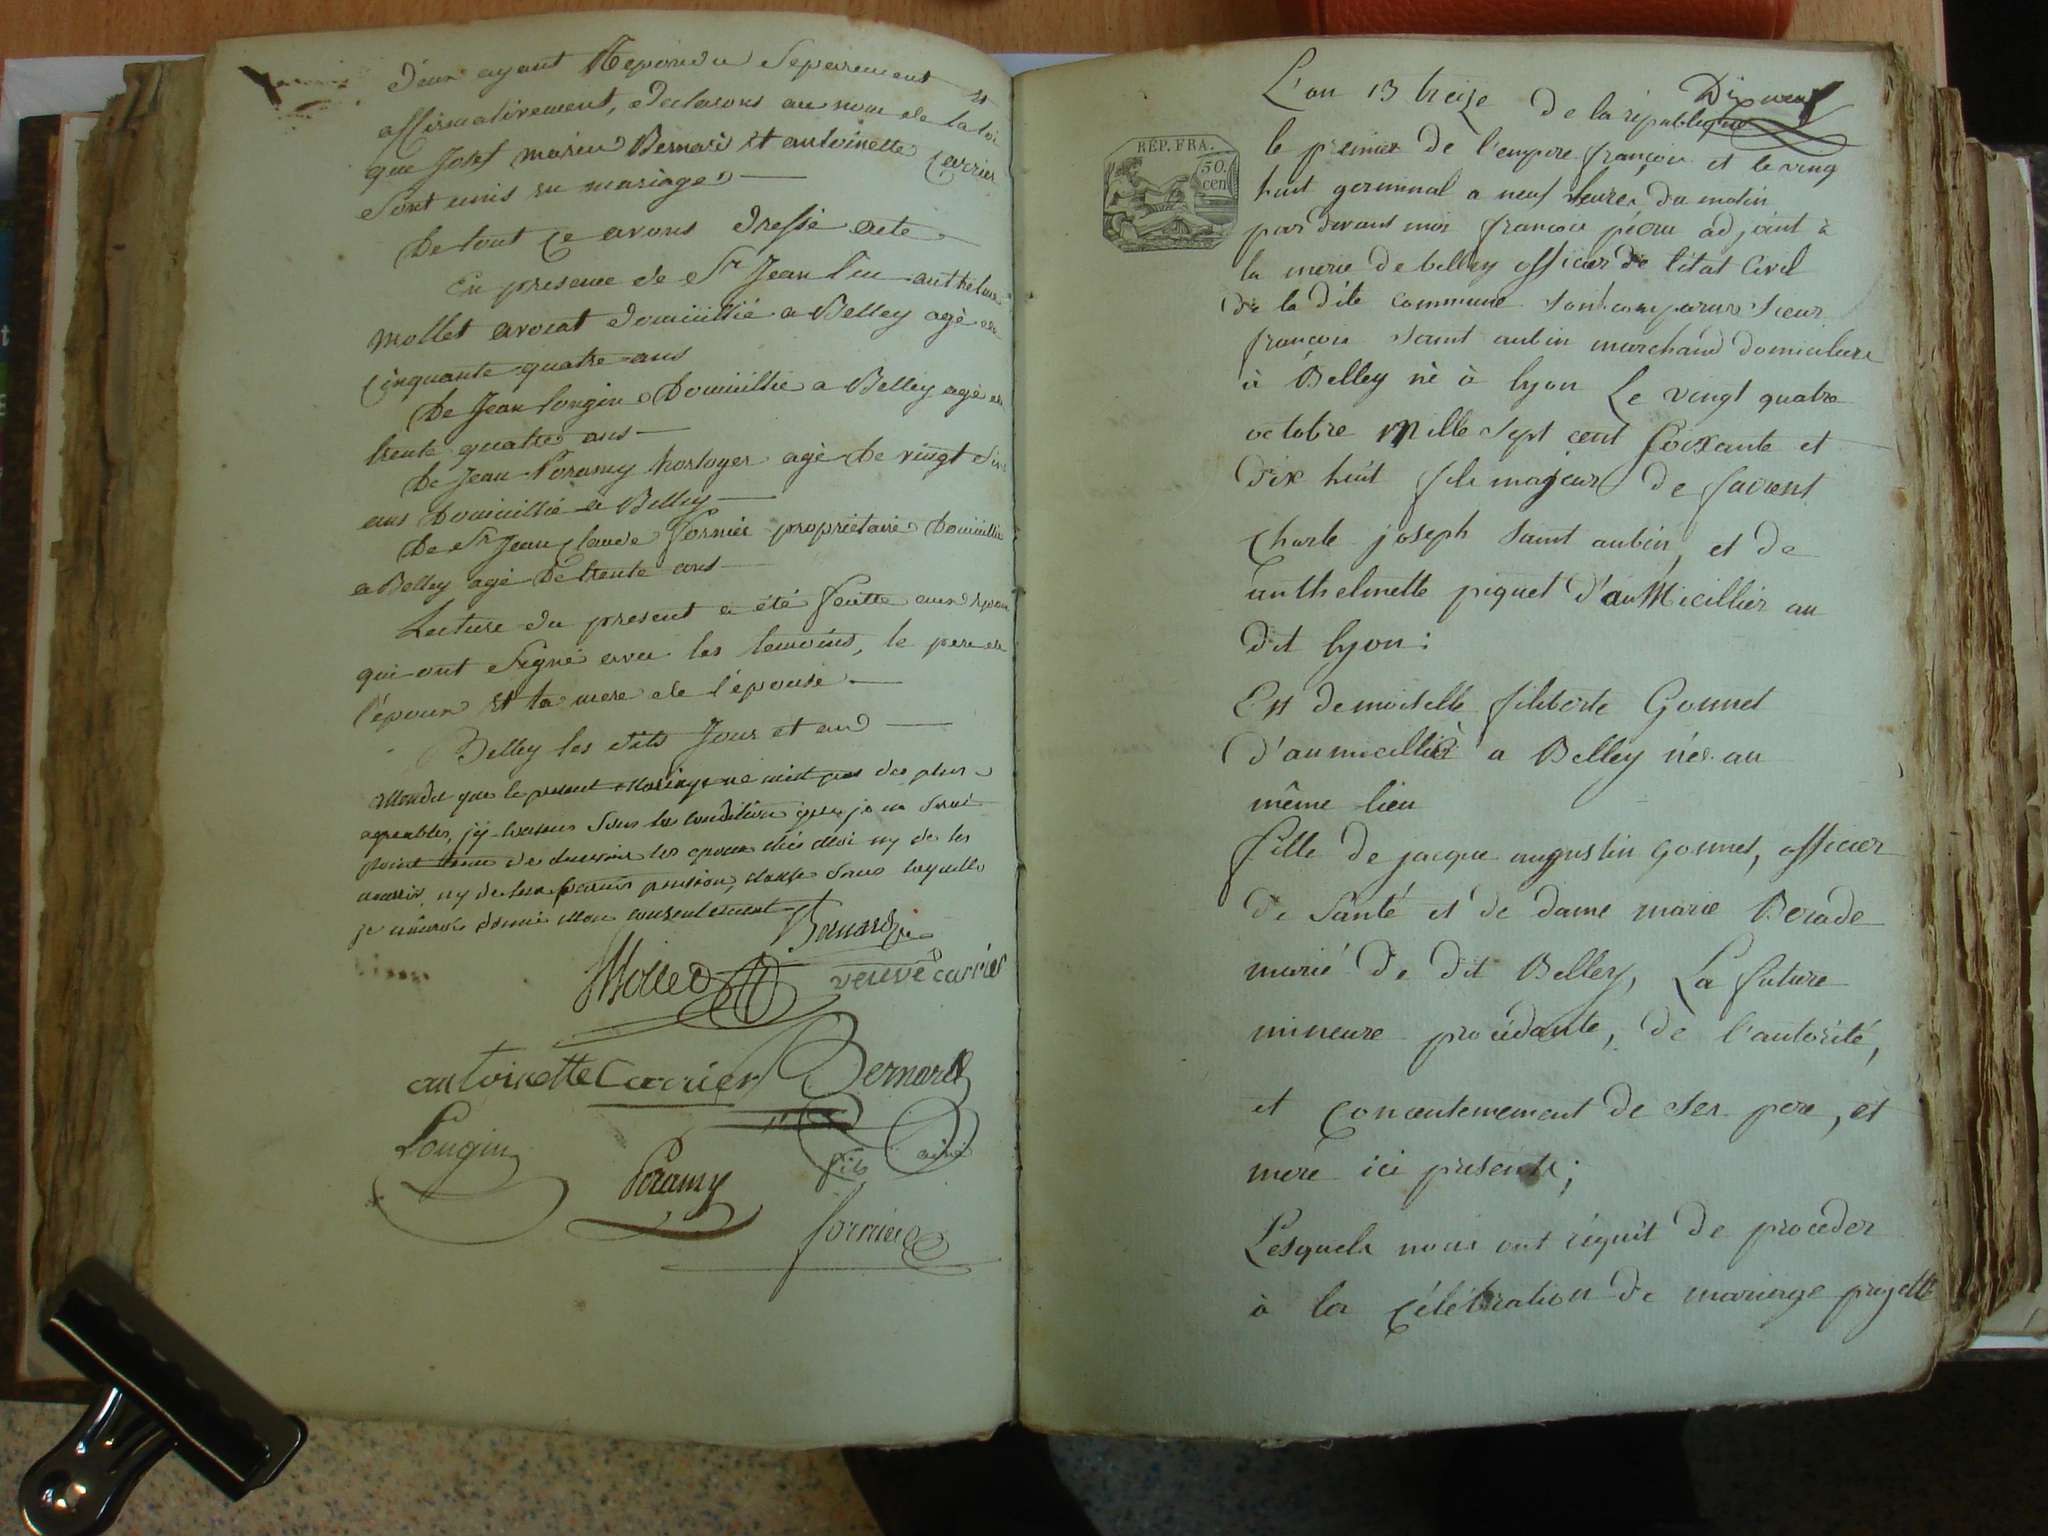 d'eux ayant Repondu Separement
affirmativement, declarons au nom de la loi
que Josef marie Bernard et antoinette Carrier
sont unis en mariage
De tout ce avons dressé acte
En presence de Sr Jean luc anthelme
mollet avocat domicillié a Belley agé de
Cinquante quatre ans
De Jean longin Domicillié a Belley agé de
trente quatre ans
De Jean Peramy horloger agé De vingt six
ans Domicillié a Belley
De Sr Jean Claude fornier propriétaire Domicillié
a Belley agé De trente ans
Lecture du present a été faitte aux epoux
qui ont Signé avec les temoins, le pere de
l'époux et la mere de l'épouse
Belley les dits Jour et an
attendu que le present mariage ne m'est pas des plus
agreables, j'y consens sous la condition que je ne serai
point tenu de recevoir les epoux chés moi ny de les
nourrir, ny de leur fournir pension, clause sans laquelle
je n'aurois donné mon consentement
Bernard
Mollet
veuve carrier
antoinette Carrier
Bernard
fils ainé
Longin
Peramy
fornier
Dix neuf
L'an 13 treize de la république
le premier de l'empire françois et le ving
huit germinal a neuf heures du matin
par devant moi françois adjoint à
la merie de belley officier de l'état Civil
de la dite commune sont comparus sieur
françois saint aubin marchand domicilier
à Belley né à lyon Le vingt quatre
octobre mille sept cent soixante et
dix huit fils majeur de
Charle joseph saint aubin, et de
anthelmette piquet d'auMicillier au
dit lyon :
Est demoiselle filiberte Gonnet
d'aumicillier a Belley née au
même lieu
fille de jacque augustin gonnet, officier
de Santé et de dame marie Berade
marié de dit Belley, La future
mineure procédante, de l'autorité,
et concentemement de ses pere, et
mere ici présents ;
Lesquels nous ont réquit de proceder
à la célébration de mariage projetté
RÉP. FRA.
50.
cen